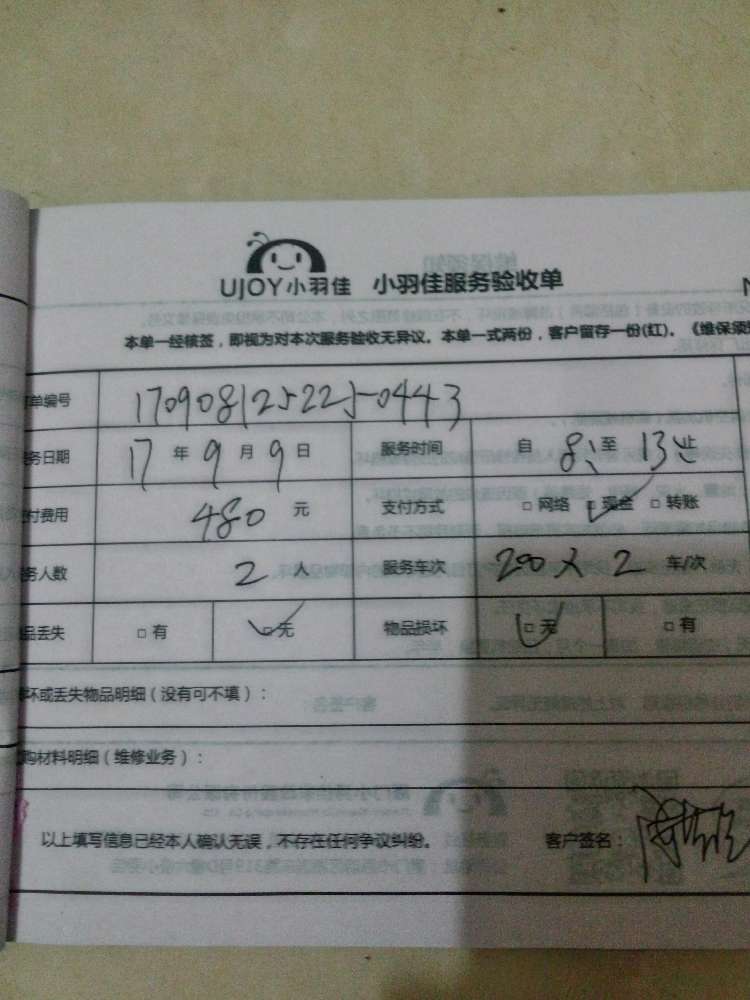 UJOY小羽佳 小羽佳服务验收单
本单一经核签，即视为对本次服务验收无异议。本单一式两份，客户留存一份(红)。《维保须
单编号 170908125225-0443
务日期 17年9月9日 服务时间 自8:至13:止
付费用 480元 支付方式 □网络 □现金 □转账
务人数 2人 服务车次 200×2车/次
品丢失 □有 □无 物品损坏 □无 □有
坏或丢失物品明细（没有可不填）：
购材料明细（维修业务）：
以上填写信息已经本人确认无误，不存在任何争议纠纷。 客户签名：